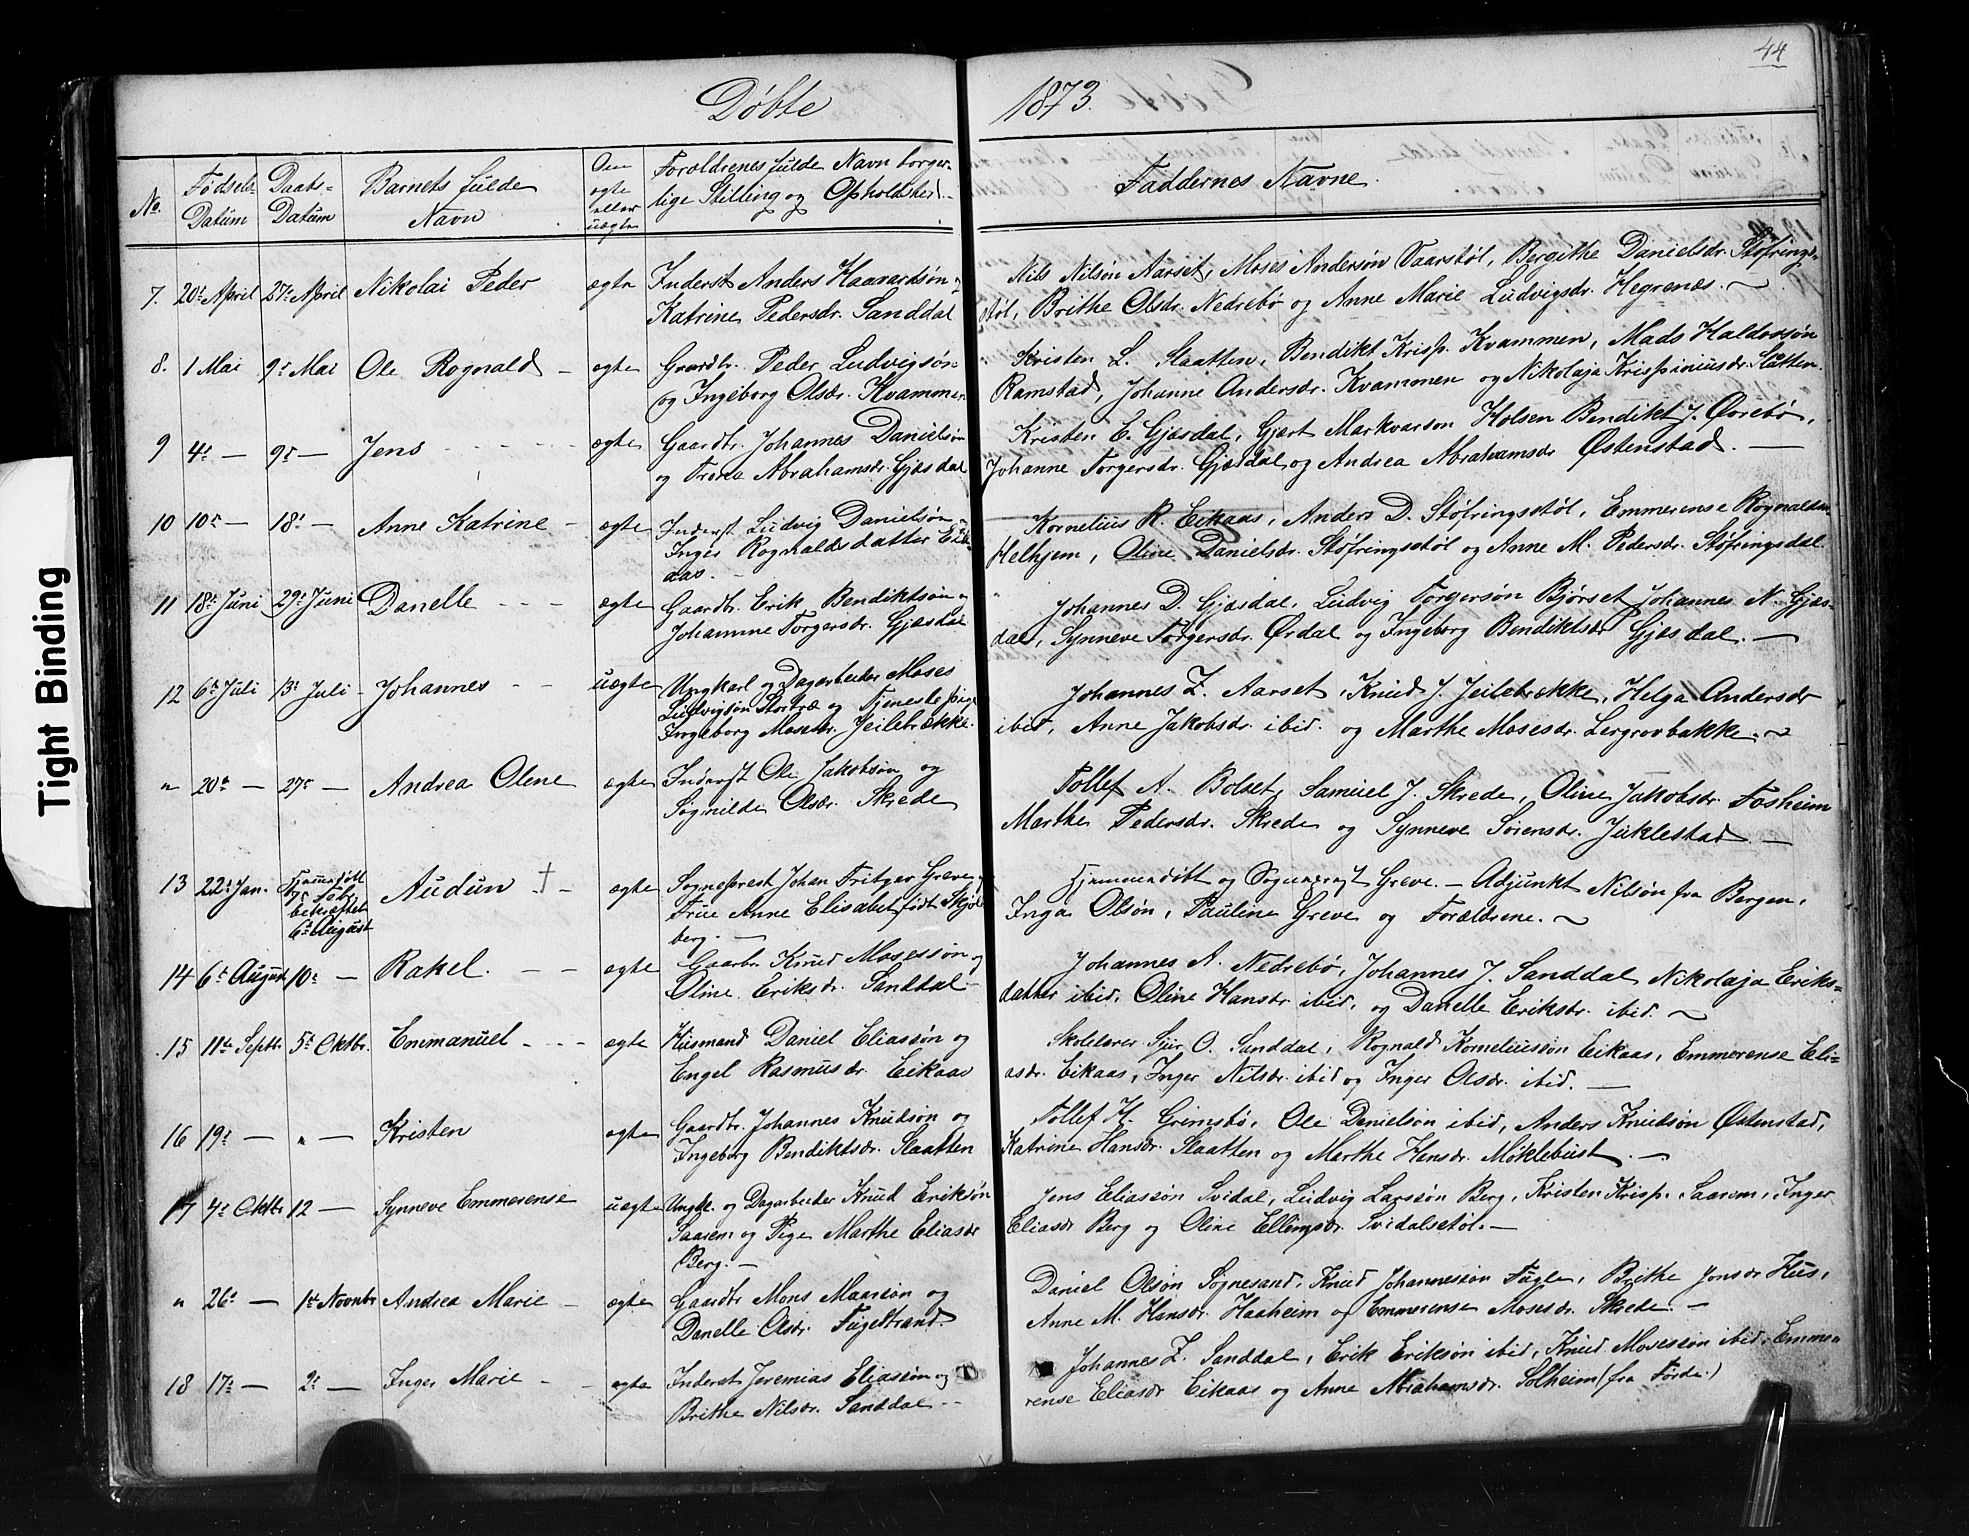 44
Døbte 1873.
No. Fødsels- Datum Daabs- Datum Barnets fulde Navn Om ægte eller uægte Forældrenes fulde Navn borger- lige Stilling og Opholdsted. Faddernes Navne.
7. 20de April 27de April Nikolai Peder ægte Inderst Anders Haavardsøn og
Katrine Pedersdr. Sanddal
Nils Nilsøn Aarset, Moses Andersøn Vaarstøl, Bergithe Danielsdr. Støfrings-
støl, Brithe Olsdr. Nedrebø og Anne Marie Ludvigsdr. Hegrenæs.
8. 1 Mai 9de Mai Ole Rognald - ægte Gaardbr. Peder Ludvigsøn
og Ingeborg Olsdr. Kvammen
Kristen L. Slaatten, Bendikt Krisp. Kvammen, Mads Haldorsøn
Ramstad, Johanne Andersdr. Kvammen og Nikolaja Krispiniusdr. Slatten.
9 4de — 9de — Jens - - - - ægte Gaardbr. Johannes Danielsøn
og Trona Abrahamsdr. Gjæsdal
Kristen E. Gjæsdal, Gjert Markvarson Holsen Bendikt J. Øvrebø,
Johanne Torgersdr. Gjæsdal og Andrea Abrahamsdr Østenstad. —
10 10de — 18de — Anne Katrine - ægte Inderst Ludvig Danielsøn og
Inger Rognaldsdatter Eik-
aas. -
Kornelius R. Eikaas, Anders D. Støfringsstøl, Emmerense Rognaldsdr.
Helhjem, Oline Danielsdr. Støfringsstøl og Anne M. Pedersdr. Støfringsdal.
11 18de Juni 29de Juni Danelle - - - ægte Gaardbr. Erik Bendiktsøn og
Johannne Torgersdr. Gjæsdal
Johannes D. Gjæsdal, Ludvig Torgersøn Bjørset Johannes N. Gjæs-
dal, Synneve Torgersdr. Ørdal og Ingeborg Bendiktsdr Gjæsdal. —
12 6te Juli 13de Juli - Johannes - - uægte Ungkarl og Dagarbeider Moses
Ludvigsøn Stortræ og Tjenestepige
Ingeborg Mosesdr. Jeilebrække.
Johannes Z. Aarset, Knud J. Jeilebrække, Helga Andersdr
ibid, Anne Jakobsdr. ibid. og Marthe Mosesdr. Lergrovbakke.
" 20de — 27de — Andrea Olene ægte Inderst Ole Jakobsøn og
Søgnilde Olsdr. Skrede
Tollef A. Bolset, Samuel J. Skrede, Oline Jakobsdr. Fosheim
Marthe Pedersdr. Skrede og Synneve Sørensdr. Juklestad. —
13 22de Jan. Hjemmedøbt Febr. bekræftet 6te August Audun † - ægte Sogneprest Johan Fritzer Greve og
Frue Anne Elisabet født Skjøl
berg. —
Hjemmedøbt og Sogneprest Greve. — Adjunkt Nilsøn fra Bergen,
Inga Olsøn, Pauline Greve og Forældrene.
14 6te August 10de — Rakel. - - ægte Gaarbr Knud Mosesøn og
Oline Eriksdr. Sanddal -
Johannes A. Nedrebø, Johannes J. Sanddal Nikolaja Eriks-
datter ibid, Oline Hansdr. ibid. og Danelle Eriksdr. ibid.
15 11te Septbr. 5te Oktbr. Emmanuel - - - ægte Husmand Daniel Eliassøn og
Engel Rasmusdr. Eikaas
Skolelærer Sjur O. Sanddal, Rognald Korneliussøn Eikaas, Emmerense Eli-
asdr. Eikaas, Inger Nilsdr. ibid og Inger Olsdr. ibid. —
16 19de — " — Kristen ægte Gaardbr. Johannes Knudsøn og
Ingeborg Bendiktsdr. Slaatten
Tollef H. Grimsbø, Ole Danielsøn ibid, Anders Knudsøn Østenstad,
Katrine Hansdr. Slaatten og Marthe Hansdr. Møklebust. —
17 4de Oktbr 12 — Synneve Emmerense uægte Ungk. og Dagarbeider Knud Eriksøn
Saarem og Pige Marthe Eliasdr
Berg. —
Jens Eliassøn Svidal, Ludvig Larssøn Berg, Kristen Krisp. Saarem, Inger
Eliasdr Berg og Oline Ellingsdr. Svidalsstøl. —
" 26de — 1ste Novnbr Andrea Marie - ægte Gaardbr Mons Maarsøn og
Danelle Olsdr. Fuglestrand.
Daniel Olsøn Sognesand, Knud Johannessøn Fugle, Brithe Jonsdr Hus,
Anne M. Hansdr. Haaheim og Emmerense Mosesdr. Skrede. —
18 17de — 2de — Inger Marie - - ægte Inderst Jeremias Eliassøn og
Brithe Nilsdr. Sanddal - -
Johannes Z. Sanddal, Erik Eriksøn ibid, Knud Mosessøn ibid, Emme-
rense Eliasdr Eikaas og Anne Abrahamsdr. Solheim (fra Førde.)
Tight Binding